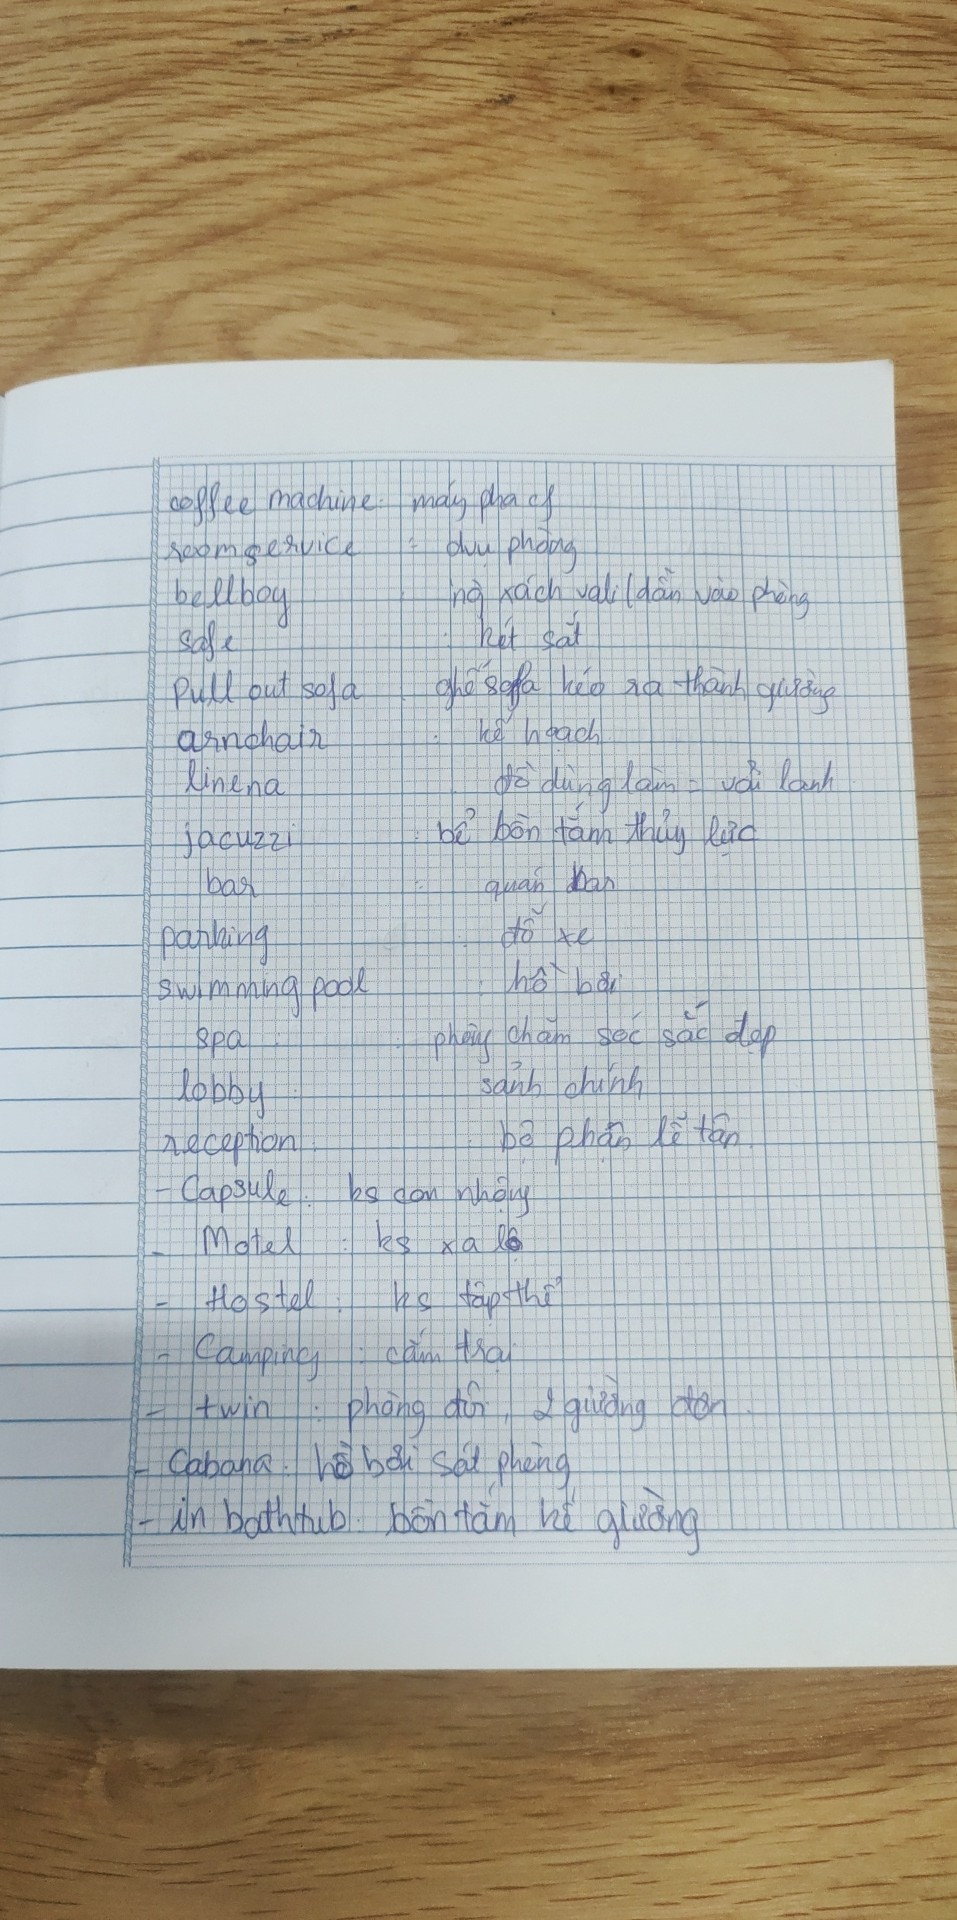 coffee machine: máy pha cf
room service : dvụ phòng
bellboy : ng xách vali (dẫn vào phòng
safe : két sắt
pull out sofa : ghế sofa kéo ra thành giường
armchair : kế hoạch
linena đồ dùng làm = vải lanh
jacuzzi : bể bồn tắm thủy lực
bar : quán bar
parking : đỗ xe
swimming pool : hồ bơi
spa : phòng chăm sóc sắc đẹp
lobby : sảnh chính
reception : bộ phận lễ tân
- Capsule : ks con nhộng
- Motel : ks xa lộ
- Hostel : ks tập thể
- Camping : cắm trại
- twin : phòng đôi, 2 giường đơn
- Cabana : hồ bơi sát phòng
- in bathtub : bồn tắm kế giường